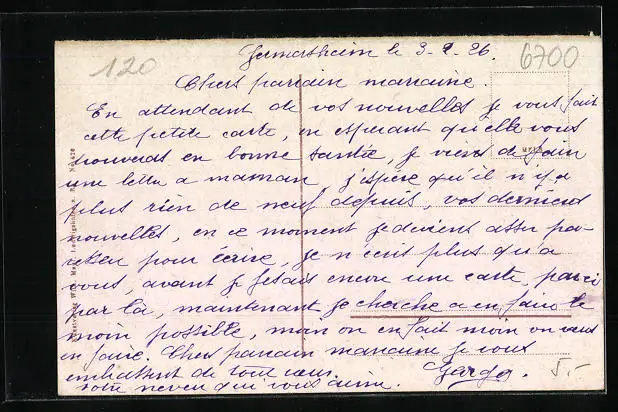 Germersheim le 3-9-26.
120
6700
Chers parrain marraine.
En attendant de vos nouvelles je vous fait
cette petite carte, en esperant qu'elle vous
trouveras en bonne santée, je viens de faire
une lettre a maman j'espère qu'il n'y a
plus rien de neuf depuis, vos dernières
nouvelles, en ce moment je deviens assez pa-
resseu pour écrire, je n'ecris plus qu'a
vous, avant je fesais encore une carte par ci
par là, maintenant je cherche a en faire le
moin possible, man on en fait moin on veut
en faire. Chers parrain marraine je vous
embrassent de tout cœur.
votre neveu qui vous aime.
5.-